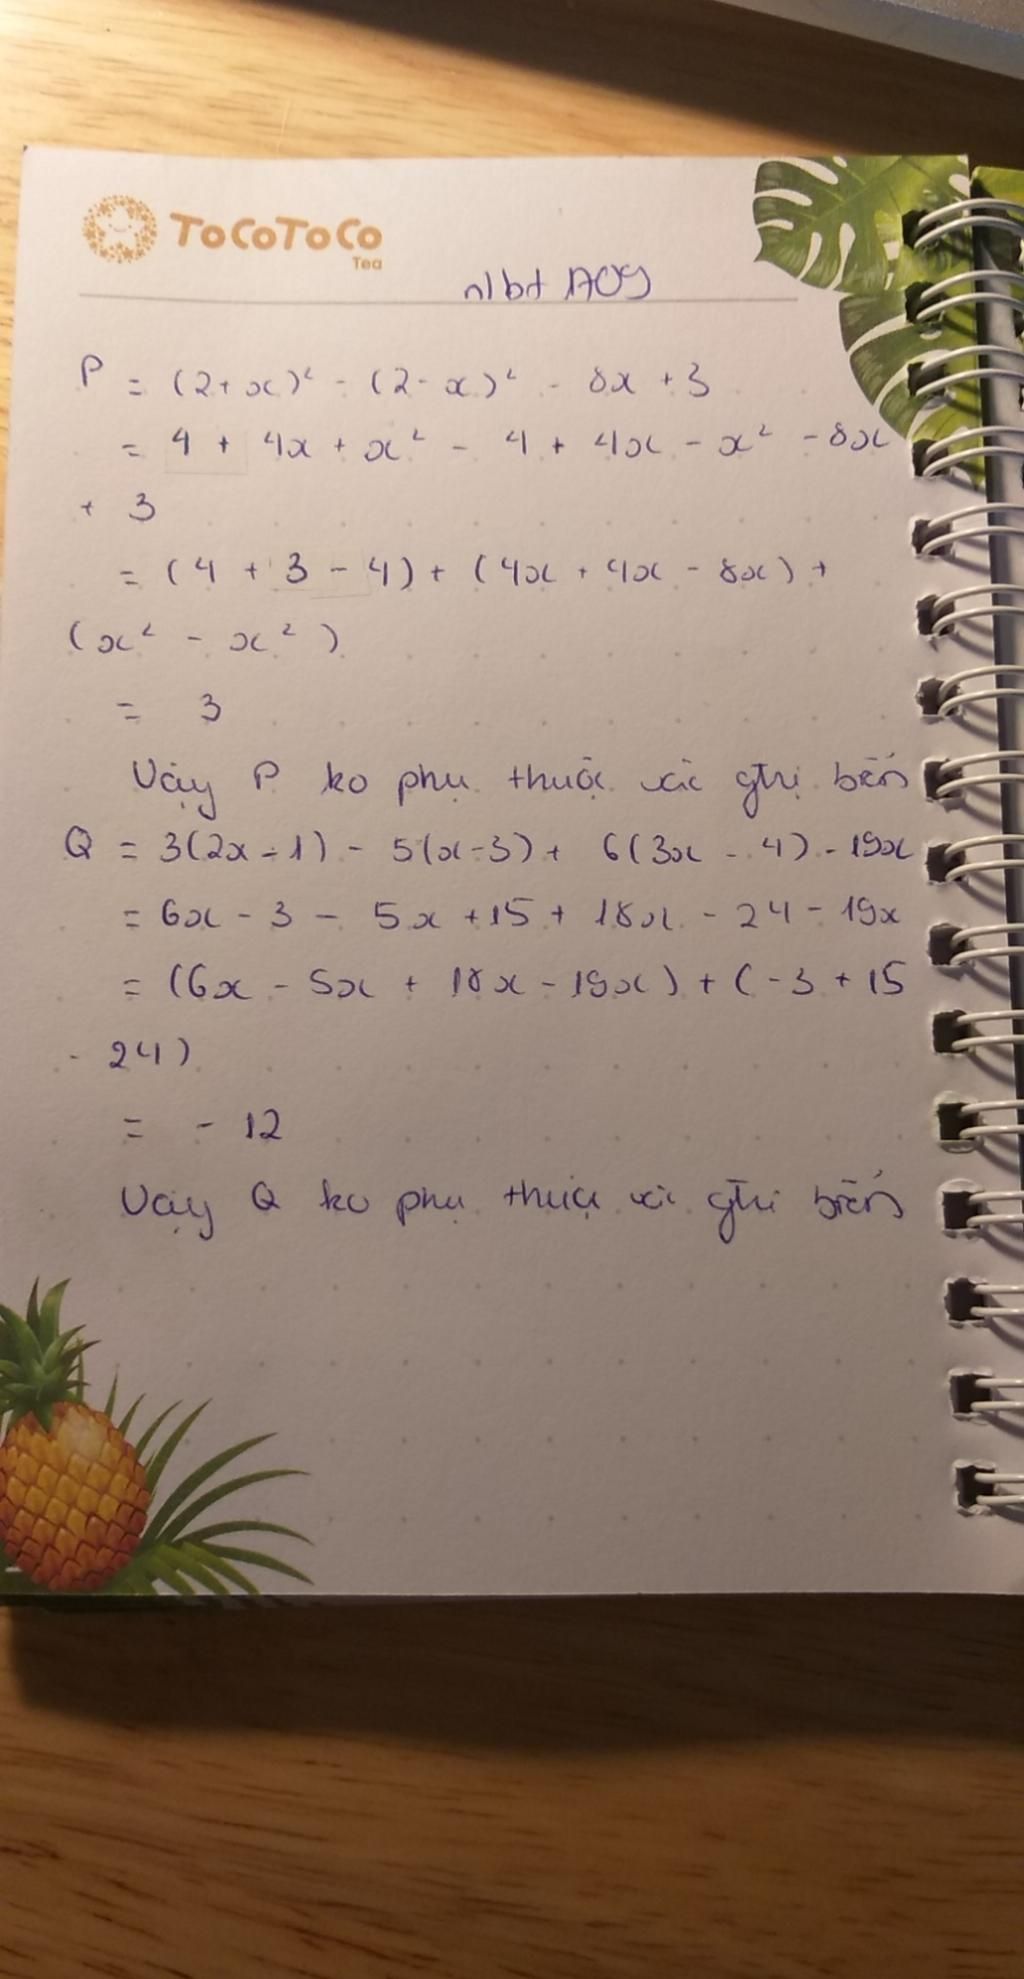 ToCoToCo
Tea
nlbt A09
P = (2+x)² - (2-x)² - 8x + 3
= 4 + 4x + x² - 4 + 4x - x² - 8x
+ 3
= (4 + 3 - 4) + (4x + 4x - 8x) +
(x² - x²)
= 3
Vậy P ko phụ thuộc vào gtrị biến
Q = 3(2x-1) - 5(x-3) + 6(3x - 4) - 19x
= 6x - 3 - 5x + 15 + 18x - 24 - 19x
= (6x - 5x + 18x - 19x) + (-3 + 15
- 24)
= - 12
Vậy Q ko phụ thuộc vào gtri biến